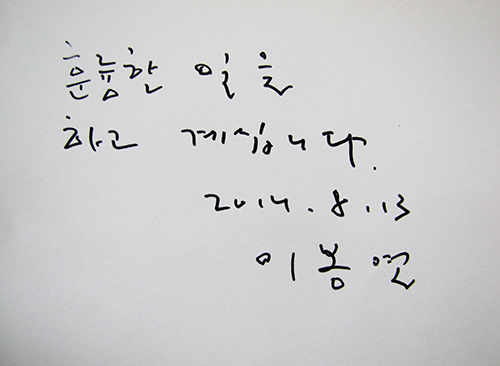 훌륭한 일을
하고 계십니다.
2014.8.13
이봉열